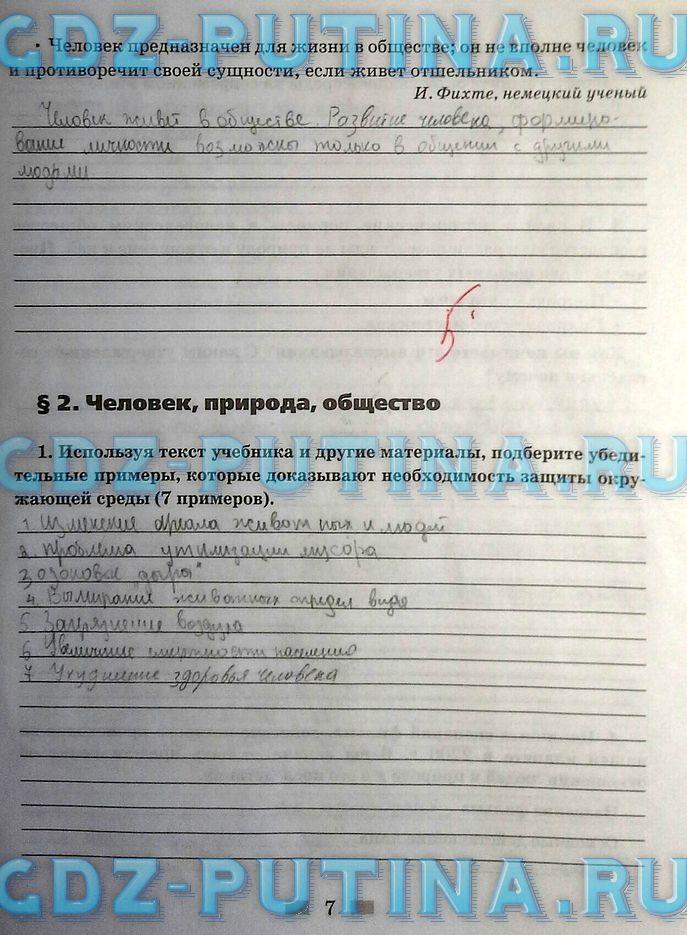 GDZ-PUTINA.RU
• Человек предназначен для жизни в обществе; он не вполне человек
и противоречит своей сущности, если живет отшельником.
И. Фихте, немецкий ученый
Человек живёт в обществе. Развитие человека, формиро-
вание личности возможны только в общении с другими
людьми
5
§ 2. Человек, природа, общество
GDZ-PUTINA.RU
1. Используя текст учебника и другие материалы, подберите убеди-
тельные примеры, которые доказывают необходимость защиты окру-
жающей среды (7 примеров).
1 Изменение ареала животных и людей
2. проблема утилизации мусора
3 озоновые "дыры"
4. Вымирание животных определ вида
5. Загрязнение воздуха
6 Увеличение смертности населения
7 Ухудшение здоровья человека
GDZ-PUTINA.RU
7